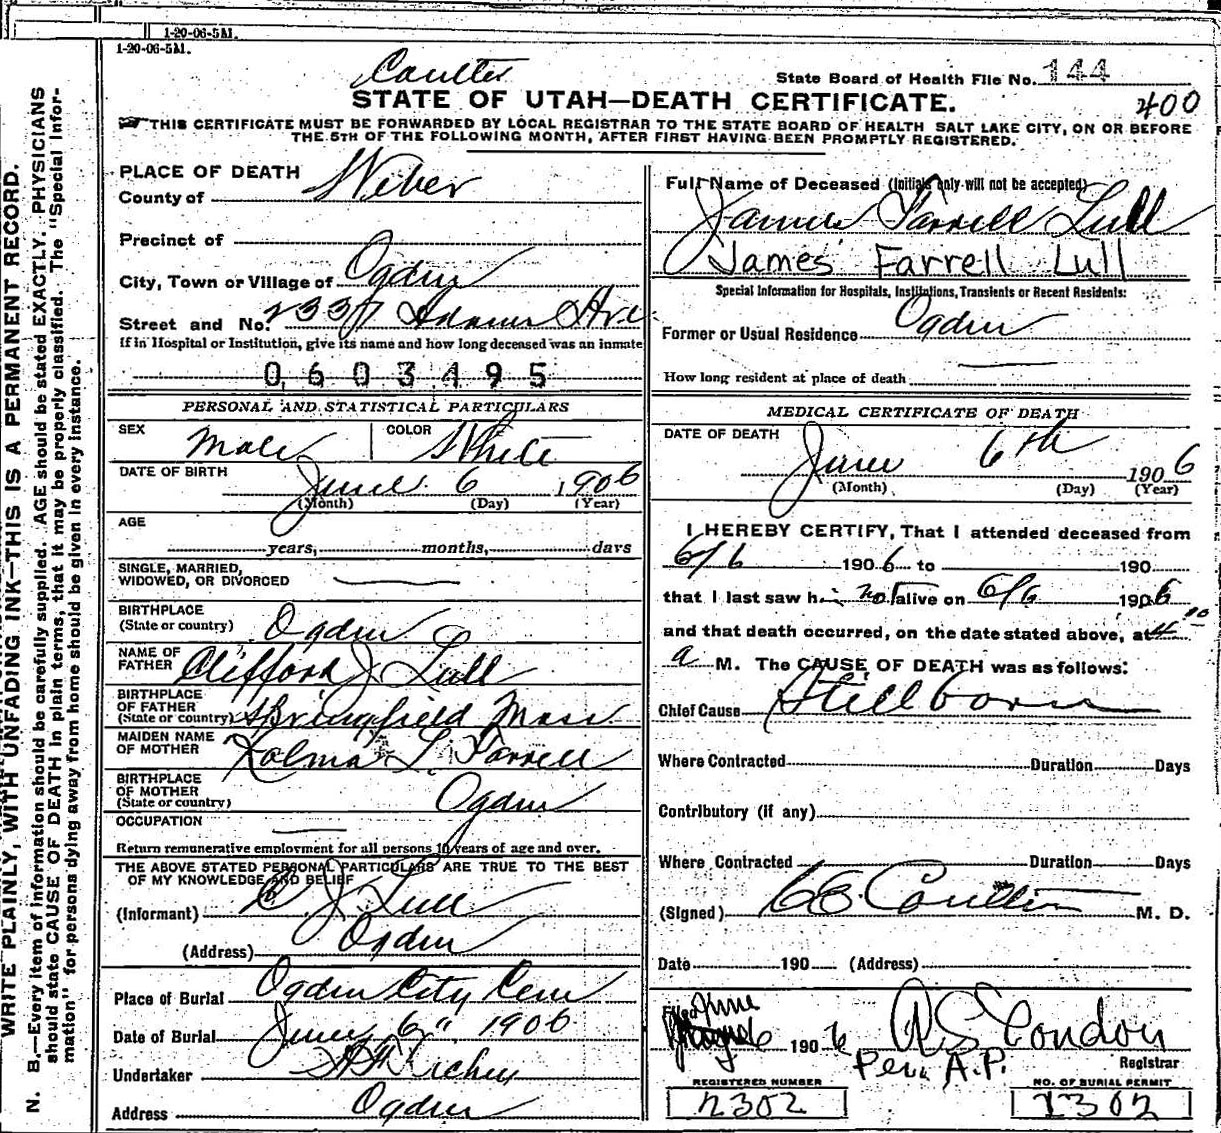 1-20-06-5M.
1-20-06-5M.
Coulter
State Board of Health File No. 144
STATE OF UTAH—DEATH CERTIFICATE.
400
THIS CERTIFICATE MUST BE FORWARDED BY LOCAL REGISTRAR TO THE STATE BOARD OF HEALTH SALT LAKE CITY, ON OR BEFORE
THE 5TH OF THE FOLLOWING MONTH, AFTER FIRST HAVING BEEN PROMPTLY REGISTERED.
WRITE PLAINLY, WITH UNFADING INK—THIS IS A PERMANENT RECORD.
N. B.—Every item of information should be carefully supplied. AGE should be stated EXACTLY. PHYSICIANS
should state CAUSE OF DEATH in plain terms, that it may be properly classified. The "Special Infor-
mation" for persons dying away from home should be given in every instance.
PLACE OF DEATH
County of Weber
Precinct of
City, Town or Village of Ogden
Street and No. Adams Ave
If in Hospital or Institution, give its name and how long deceased was an inmate
0603495
PERSONAL AND STATISTICAL PARTICULARS
SEX Male COLOR White
DATE OF BIRTH June 6 1906
(Month) (Day) (Year)
AGE
years, months, days
SINGLE, MARRIED,
WIDOWED, OR DIVORCED
BIRTHPLACE
(State or country) Ogden
NAME OF
FATHER Clifford J Lull
BIRTHPLACE
OF FATHER
(State or country) Springfield Mass
MAIDEN NAME
OF MOTHER L. Farrell
BIRTHPLACE
OF MOTHER
(State or country) Ogden
OCCUPATION
Return remunerative employment for all persons 10 years of age and over.
THE ABOVE STATED PERSONAL PARTICULARS ARE TRUE TO THE BEST
OF MY KNOWLEDGE AND BELIEF
(Informant) C. J. Lull
(Address) Ogden
Place of Burial Ogden City Cem
Date of Burial June 6" 1906
Undertaker
Address Ogden
Full Name of Deceased (Initials only will not be accepted)
James Farrell Lull
James Farrell Lull
Special Information for Hospitals, Institutions, Transients or Recent Residents:
Former or Usual Residence Ogden
How long resident at place of death
MEDICAL CERTIFICATE OF DEATH
DATE OF DEATH
June 6th 1906
(Month) (Day) (Year)
I HEREBY CERTIFY, That I attended deceased from
6/6 1906 to 190
that I last saw him not alive on 6/6 1906
and that death occurred, on the date stated above, at 4
a M. The CAUSE OF DEATH was as follows:
Chief Cause Stillborn
Where Contracted Duration Days
Contributory (if any)
Where Contracted Duration Days
(Signed) C E Coulter M. D.
Date 190 (Address)
Filed June 6 1906 A S Condon
Per A.P. Registrar
REGISTERED NUMBER NO. OF BURIAL PERMIT
2302 2302